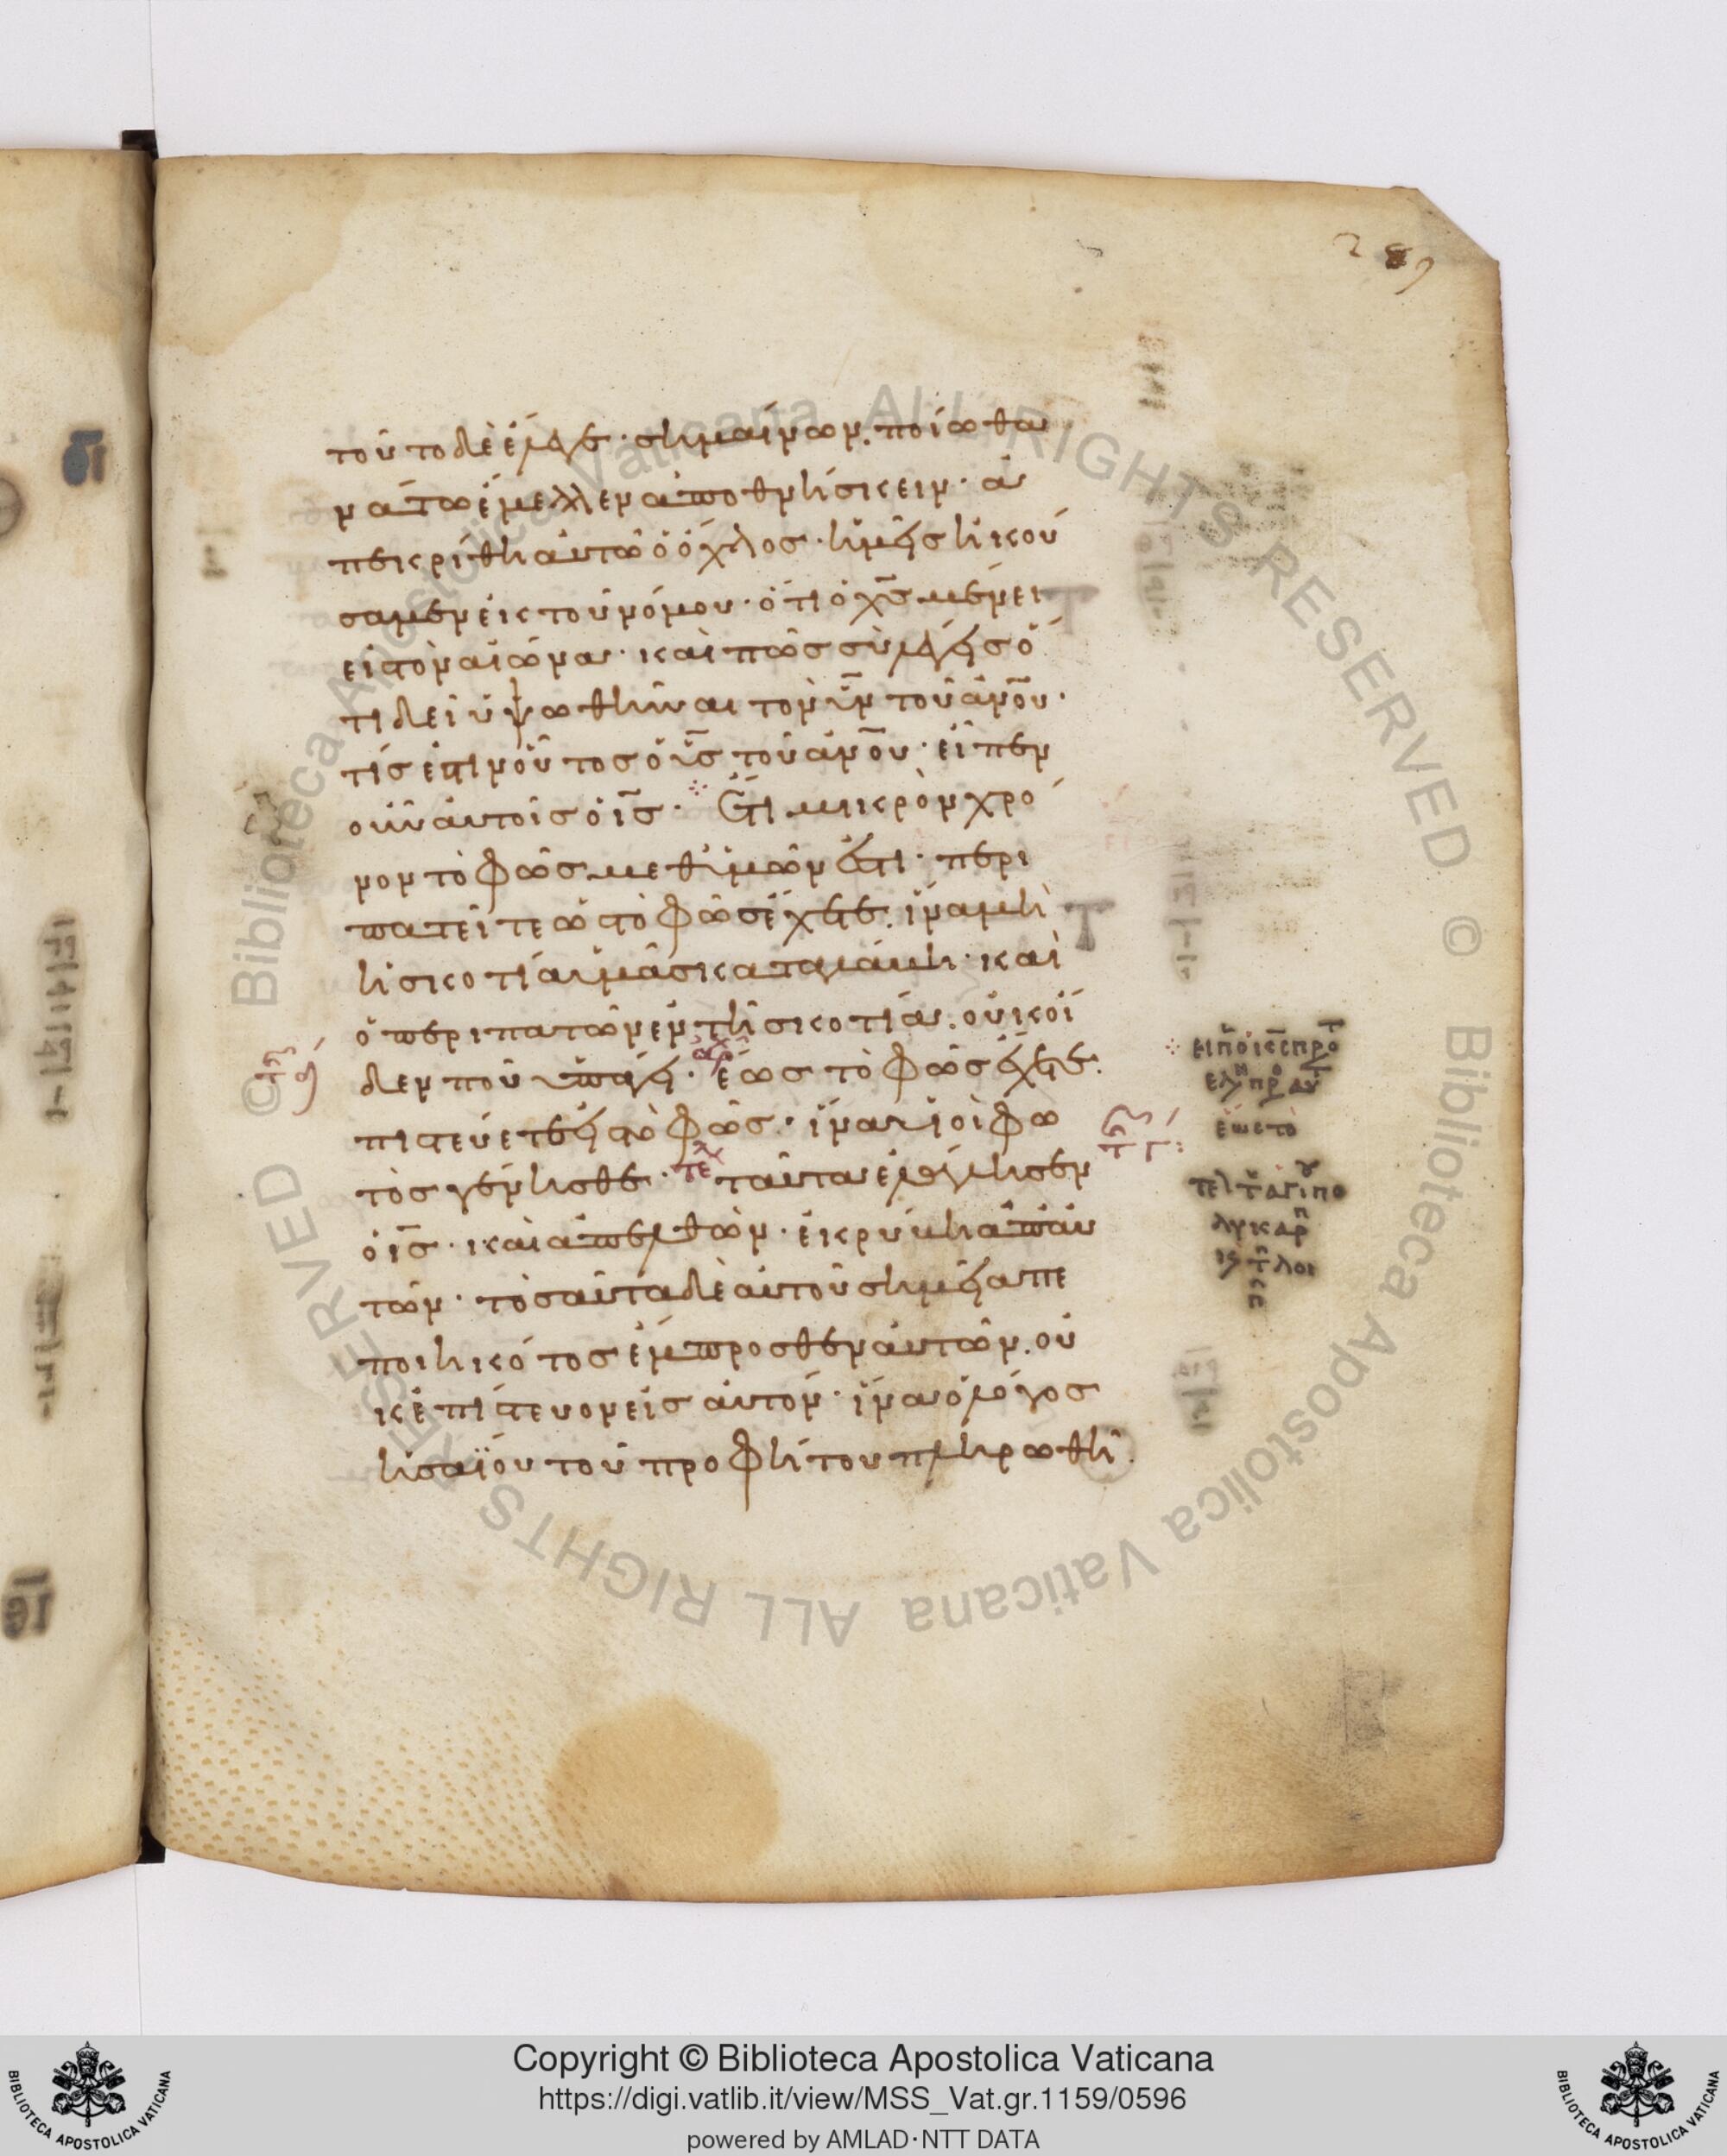 289
τοῦτο δὲ ἔλεγε· σημαίνων ποίω θα
νάτω ἔμελλεν ἀποθνήσκειν· ἀ
πεκρίθη αὐτῶ ὁ ὄχλος· ἡμεῖς ἠκού
σαμεν ἐκ τοῦ νόμου· ὅτι ὁ χ̅ς̅ μένει
εἰς τὸν αἰῶνα· καὶ πῶς σὺ λέγεις ὅ
τι δεῖ ὑψωθῆναι τὸν υ̅ν̅ τοῦ ἀν̅ο̅υ·
τίς ἐστιν οὗτος ὁ υ̅ς̅ τοῦ ἀν̅ο̅υ· εἶπεν
οὖν αὐτοῖς ὁ ι̅ς̅· Ἔτι μικρὸν χρό
νον τὸ φῶς μεθ ὑμῶν ἐστι· περι
πατεῖτε ὡς τὸ φῶς ἔχετε. ἵνα μὴ
ἡ σκοτία ὑμᾶς καταλάβη· καὶ
ὁ περιπατῶν ἐν τῆ σκοτία. οὐκ οἶ
δεν ποῦ ὑπάγει· ἕως τὸ φῶς ἔχετε.
πιστεύετε εἰς τὸ φῶς· ἵνα υἱοὶ φω
τὸς γένησθε· τε ταῦτα ἐλάλησεν
ὁ ι̅ς̅· καὶ ἀπελθὼν· ἐκρύβη ἀπ αὐ
τῶν· τοσαῦτα δὲ αὐτοῦ σημεῖα πε
ποιηκότος ἔμπροσθεν αὐτῶν. οὐ
κ ἐπίστευον εἰς αὐτόν· ἵνα ὁ λόγος
ἡσαΐου τοῦ προφήτου πληρωθῆ.
ἕως τὸ
Copyright © Biblioteca Apostolica Vaticana
https://digi.vatlib.it/view/MSS_Vat.gr.1159/0596
powered by AMLAD·NTT DATA
BIBLIOTECA APOSTOLICA VATICANA
BIBLIOTECA APOSTOLICA VATICANA
© Biblioteca Apostolica Vaticana ALL RIGHTS RESERVED
© Biblioteca Apostolica Vaticana ALL RIGHTS RESERVED